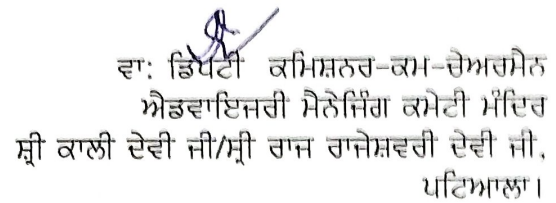 ਵਾ: ਡਿਪਟੀ ਕਮਿਸ਼ਨਰ-ਕਮ-ਚੇਅਰਮੈਨ
ਐਡਵਾਇਜਰੀ ਮੈਨੇਜਿੰਗ ਕਮੇਟੀ ਮੰਦਿਰ
ਸ਼੍ਰੀ ਕਾਲੀ ਦੇਵੀ ਜੀ/ਸ਼੍ਰੀ ਰਾਜ ਰਾਜੇਸ਼ਵਰੀ ਦੇਵੀ ਜੀ,
ਪਟਿਆਲਾ।